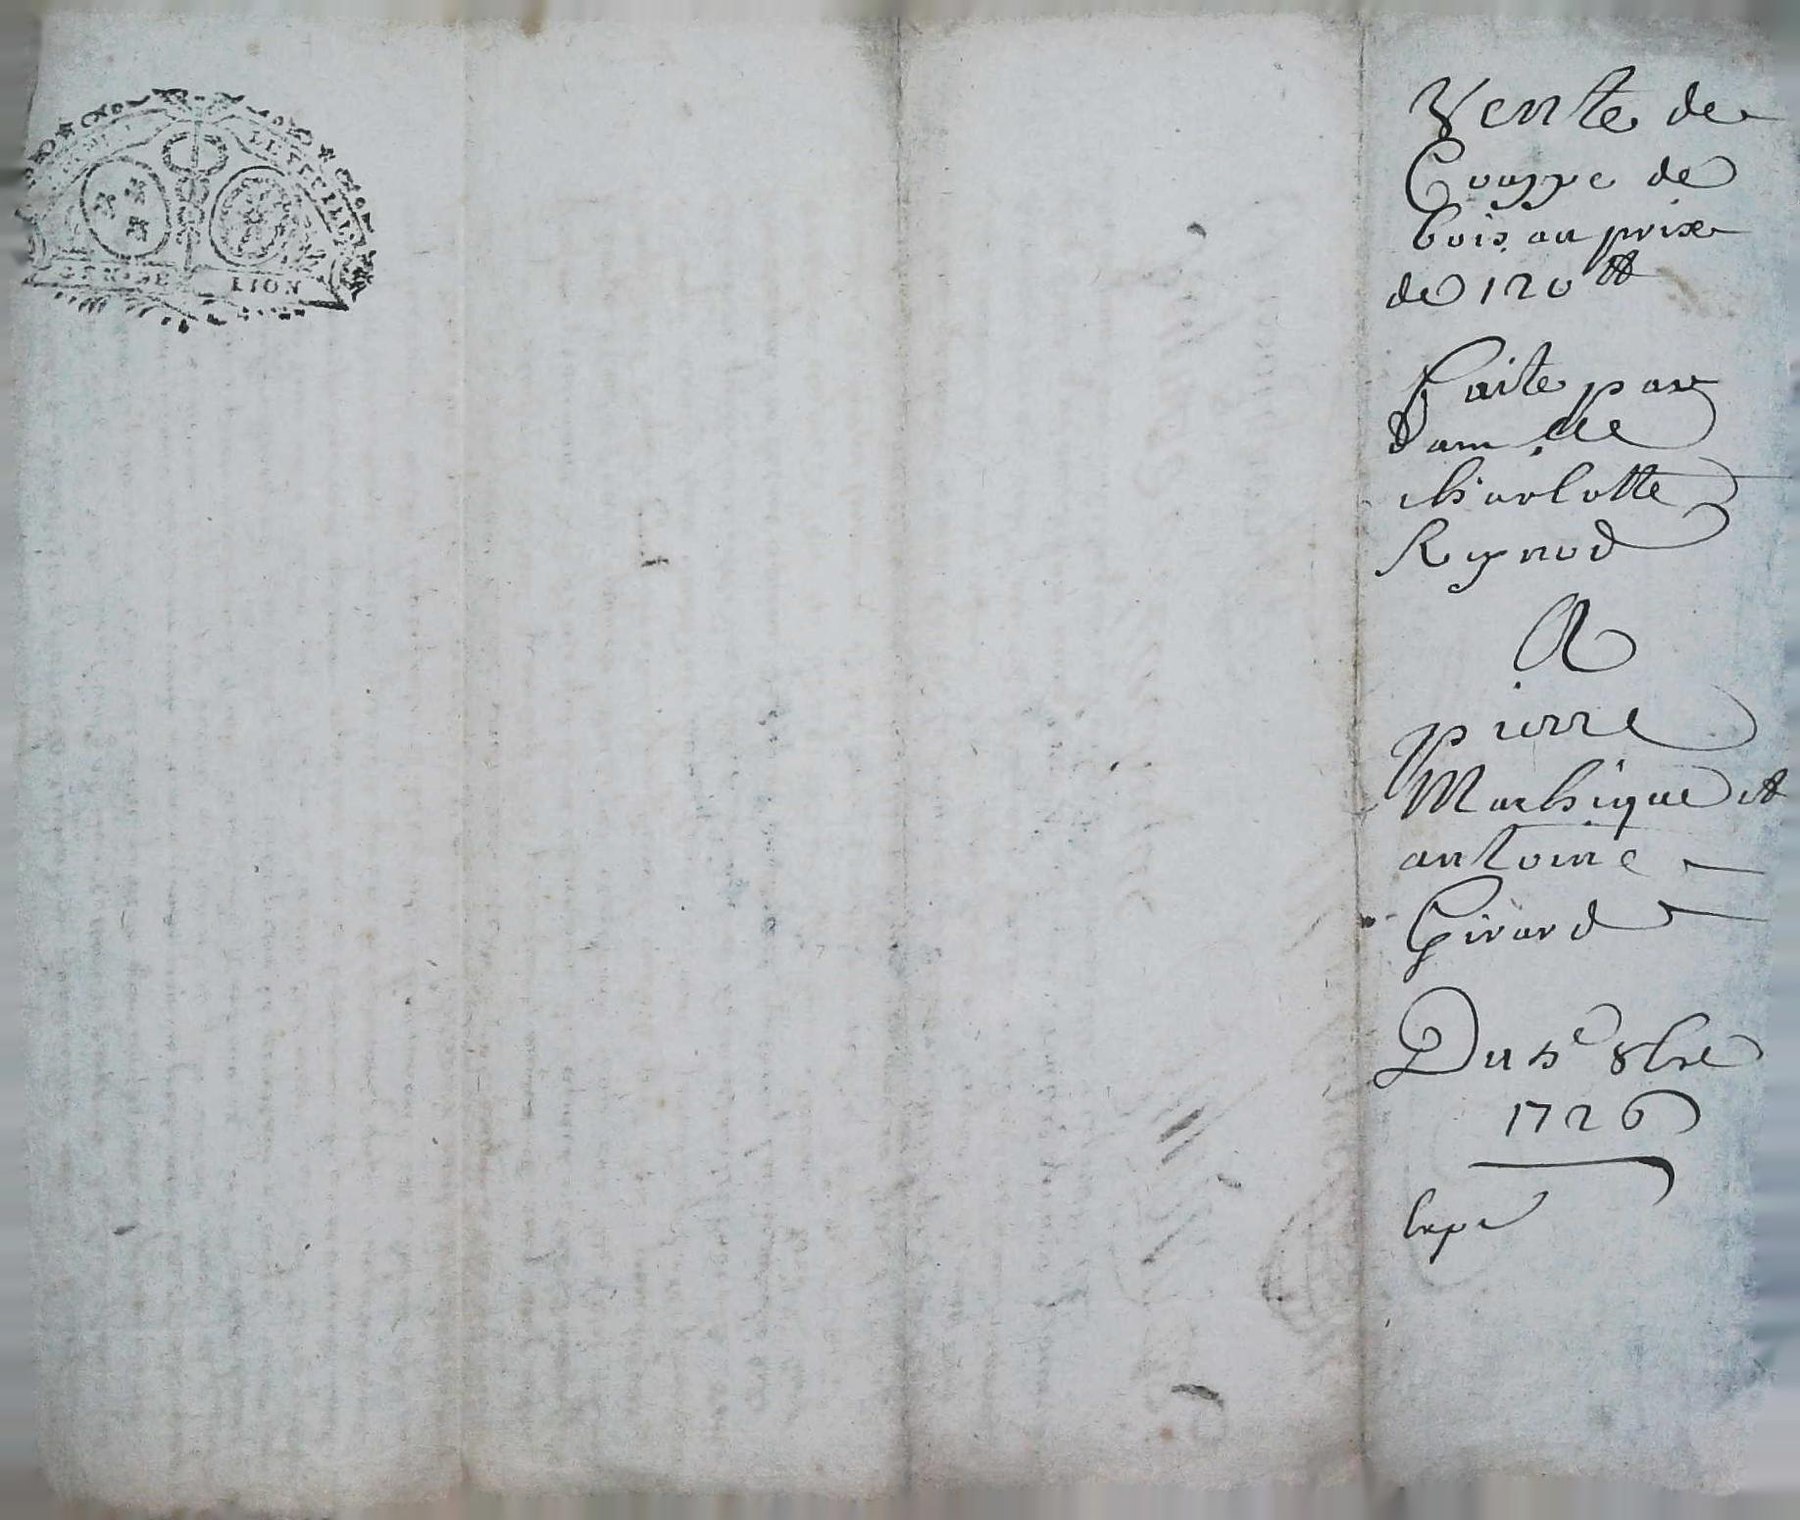 GEN. DE LION
Vente de
Couppe de
bois au prix
de 120 ₶
Faite par
dam.lle
charlotte
Reynod
A
pierre
Machique et
antoine
Girard
Du 5e 8bre
1726